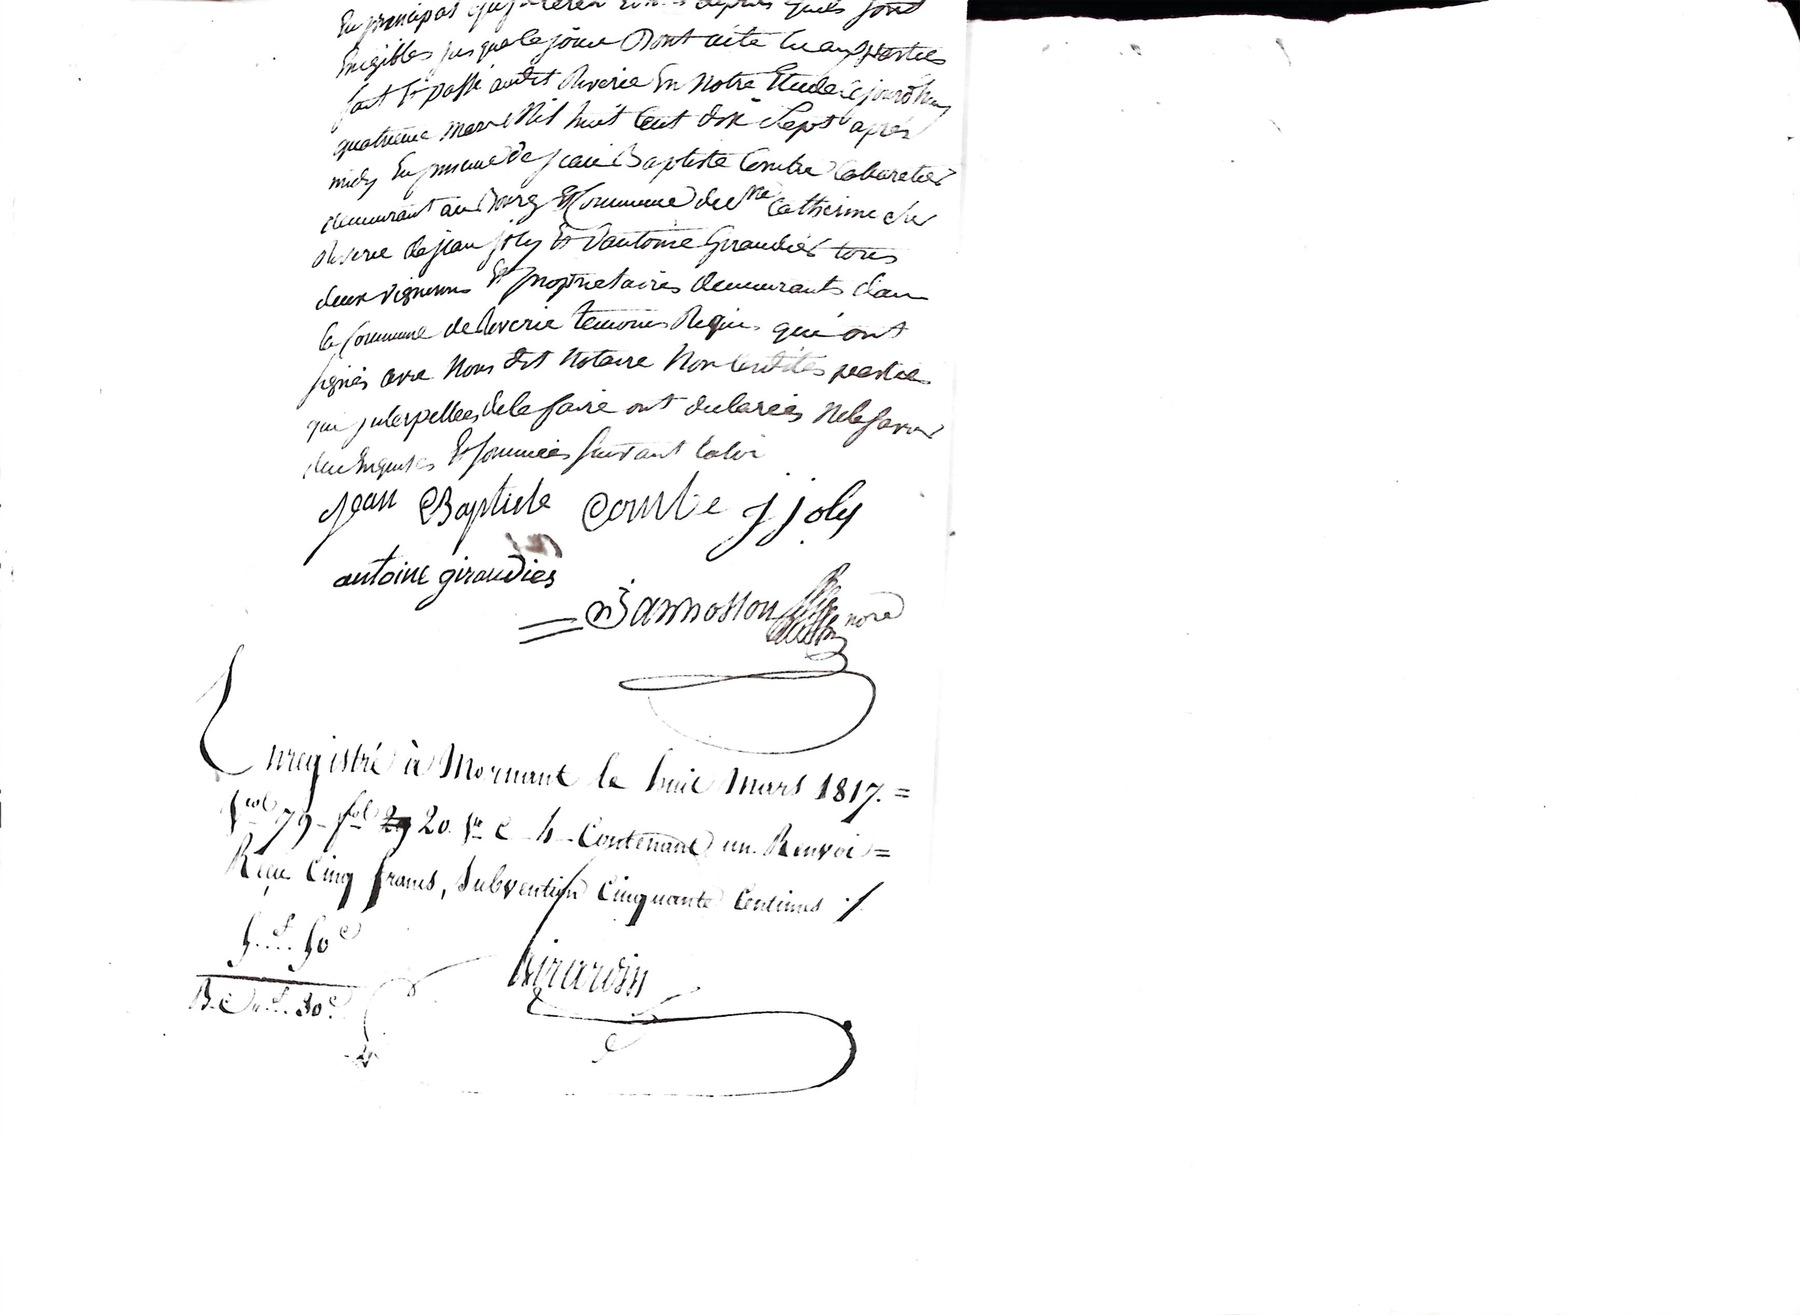 En principal
Exigibles jusqua ce jour Dont acte lu aux parties
fait Et passé audit Riverie En Notre Etude Cejourdhuy
quatrieme mars Mil huit Cent dix Sept après
midy En presence De jean Baptiste Combe Cabaretier
demeurant au Bourg Et Commune de Ste Catherine sur
Riverie de jean joly Et Dantoine Giraudier tous
deux vignerons Et proprietaires demeurants dans
la Commune de Riverie temoins Requis qui ont
signés avec Nous dit Notaire Non lesdites parties
qui interpellées de le faire ont declarées Ne le savoir
de ce Enquises Et sommées suivant la loi
jean Baptiste Combe j joly
antoine giraudier
= nore
Enregistré à Mornant le huit Mars 1817. =
Vol 79 fol 20. Vo C 4 Contenant un Renvoi =
Reçu Cinq francs, Subvention Cinquante Centimes ./.
5.f. 50c
Girardin